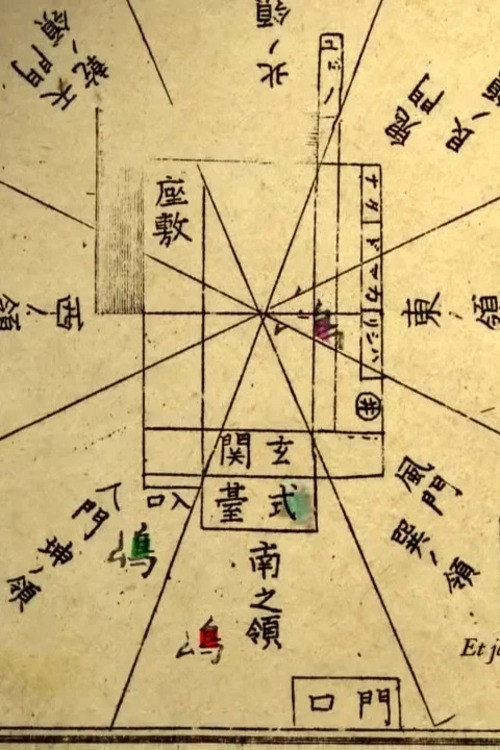 北ノ領
乾ノ領
天門
鬼門
艮ノ領
座敷
西ノ領
東 領
井
玄関
式臺
風門
巽ノ領
入口
人門
坤ノ領
南之領
門口
Et